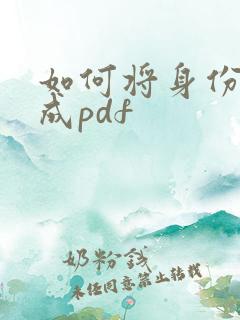 如何将身份
成pdf
奶粉钱
未经同意禁止转载